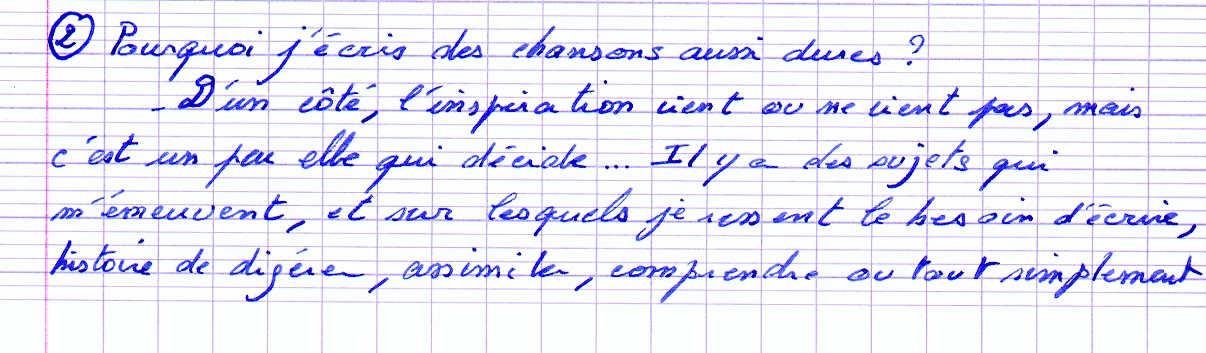 ② Pourquoi j'écris des chansons aussi dures ?
- D'un côté, l'inspiration vient ou ne vient pas, mais
c'est un peu elle qui décide... Il y a des sujets qui
m'émeuvent, et sur lesquels je ressent le besoin d'écrire,
histoire de digérer, assimiler, comprendre ou tout simplement